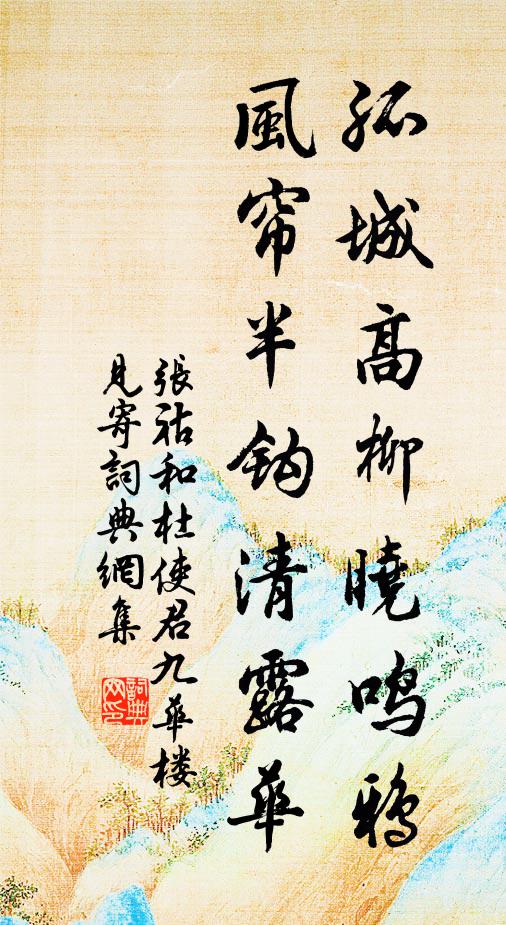 孤城高柳曉鳴鴉
風帘半鈎清露華
張祜和杜使君九華楼
見寄詞典網集
詞典
网印